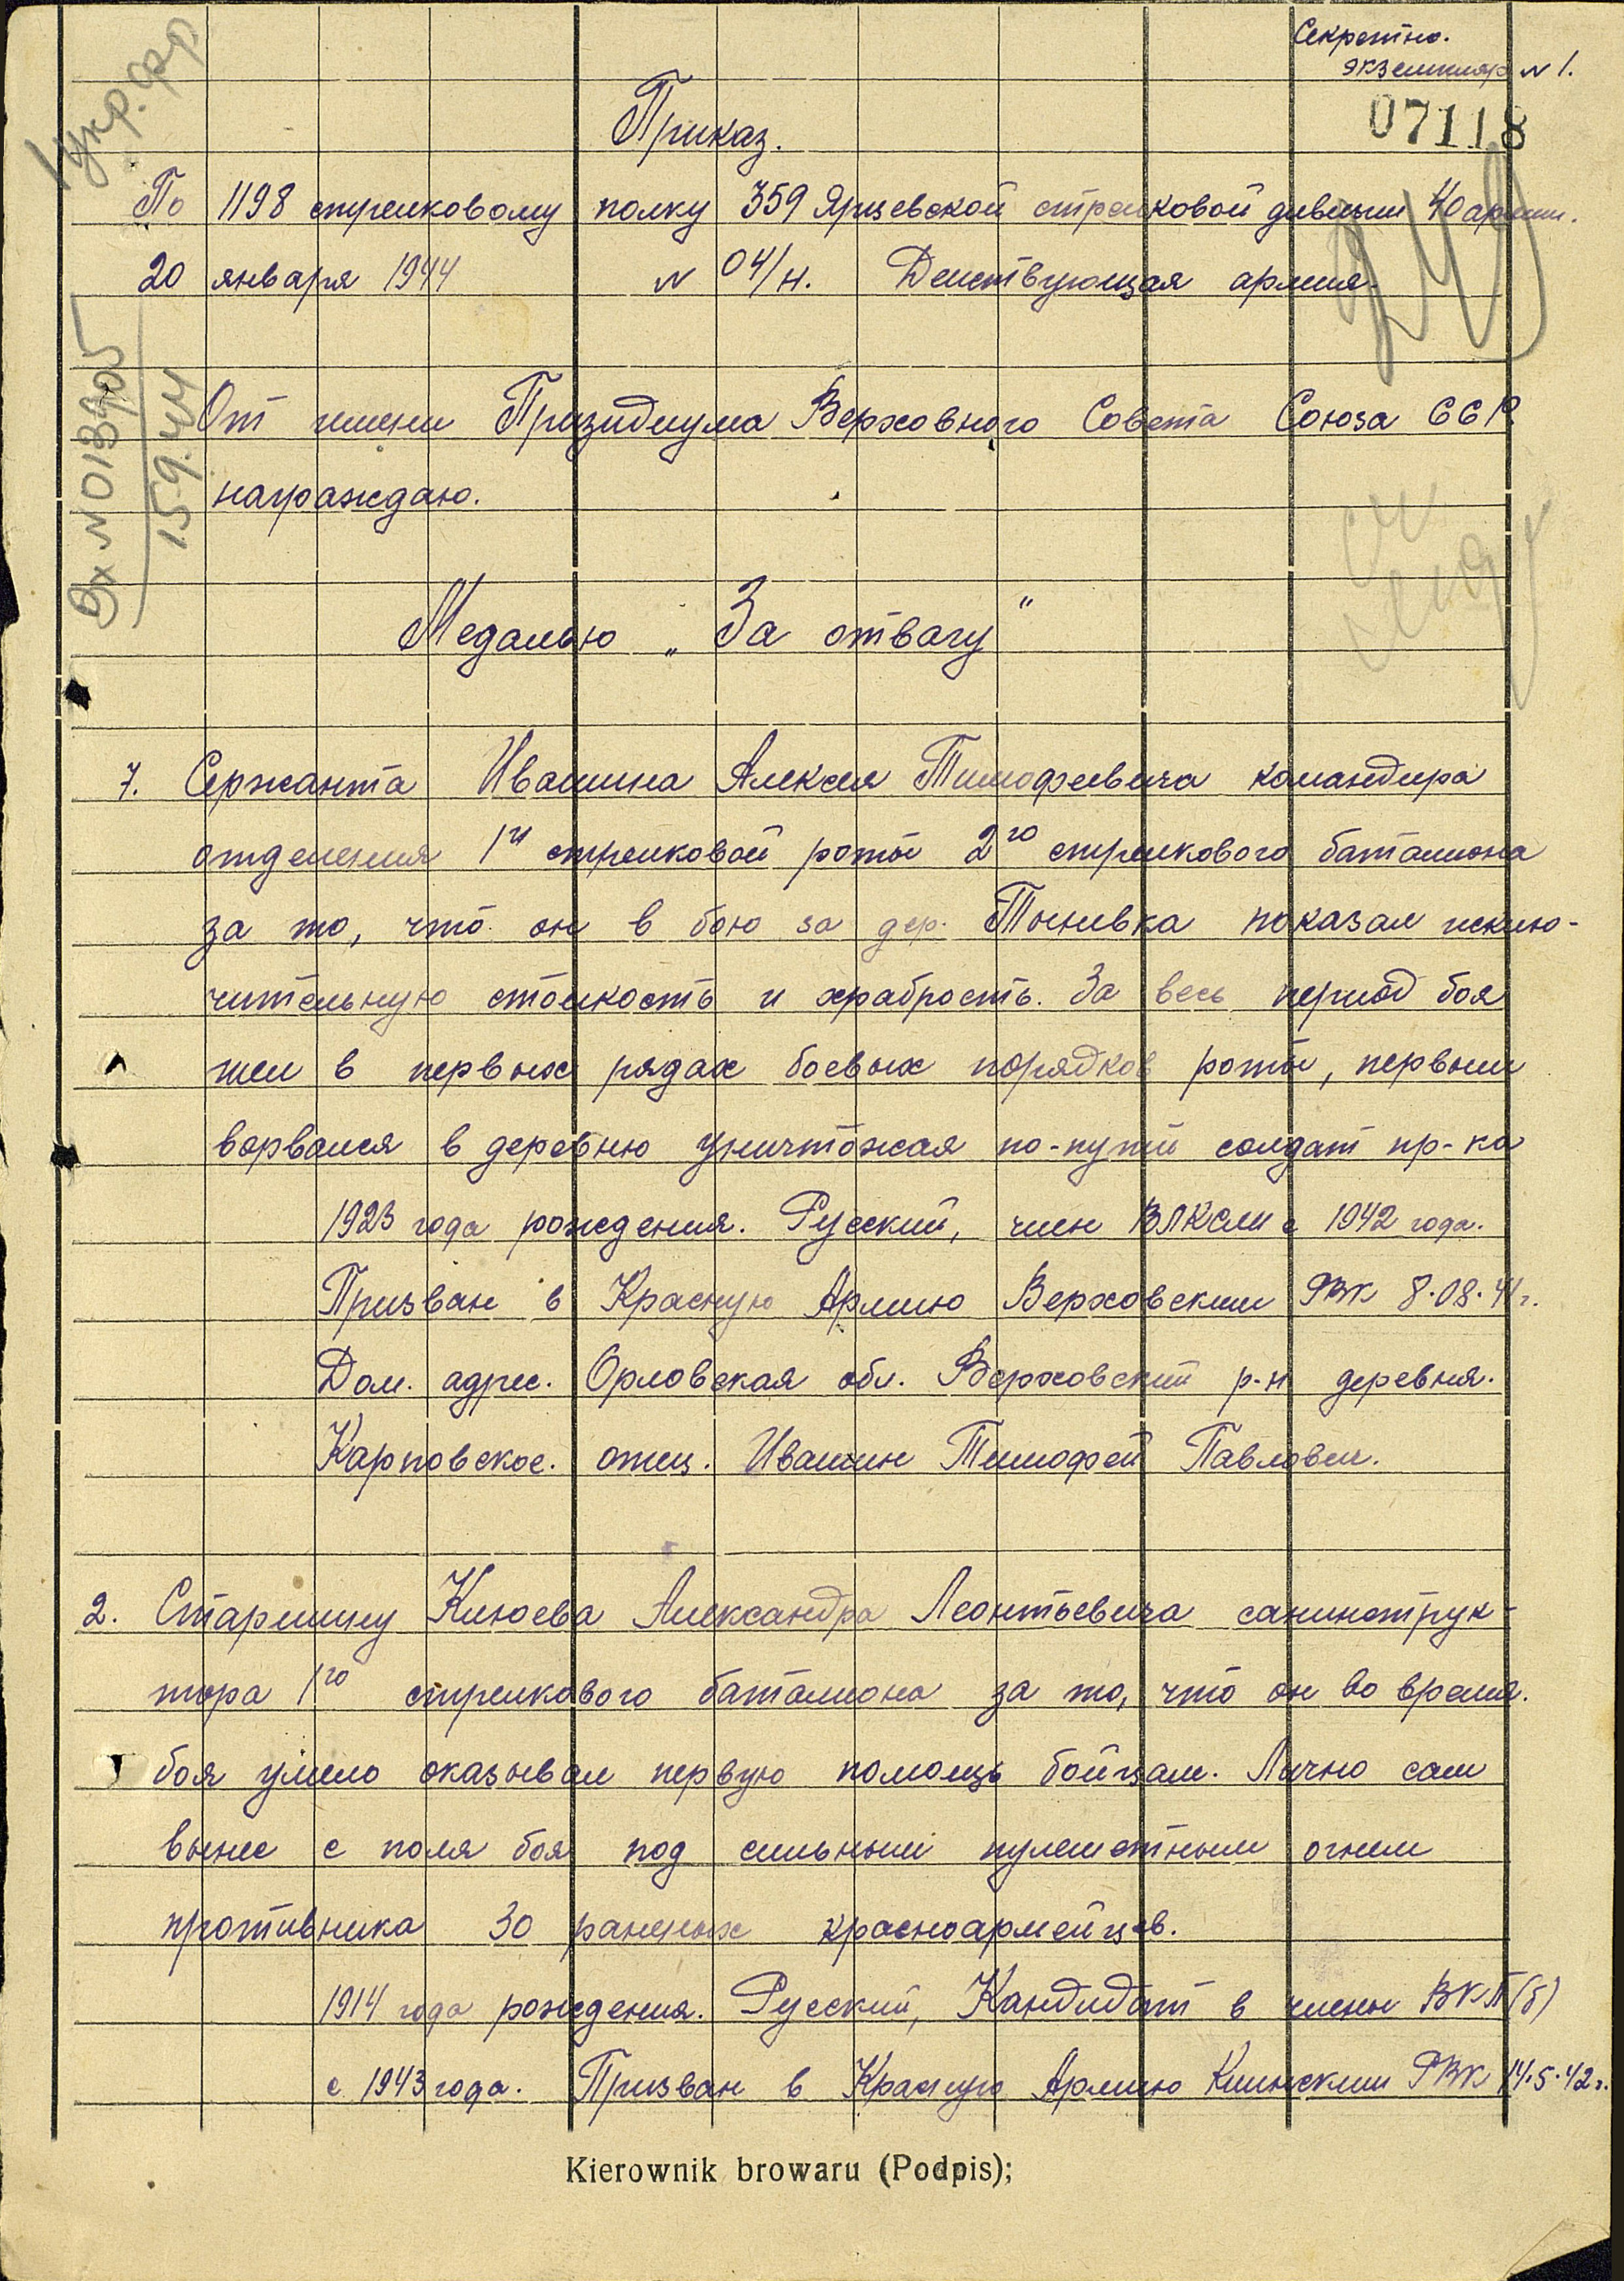 Секретно.
Экземпляр № 1.
07118
1 Укр. фр
Приказ.
По 1198 стрелковому полку 359 Ярцевской стрелковой дивизии 40 армии.
20 января 1944 № 04/н. Действующая армия.
Вх № 013905
15.9.44
От имени Призидиума Верховного Совета Союза ССР
награждаю.
Медалью „За отвагу"
1. Сержанта Ивашина Алексея Тимофеевича командира
отделения 1й стрелковой роты 2го стрелкового баталиона
за то, что он в бою за дер. Тыневка показал исклю-
чительную стойкость и храбрость. За весь период боя
шел в первых рядах боевых порядков роты, первым
ворвался в деревню уничтожая по-пути солдат пр-ка
1923 года рождения. Русский, член ВЛКСМ с 1942 года.
Призван в Красную Армию Верховским РВК 8.08.41г.
Дом. адрес. Орловская обл. Верховский р-н деревня.
Карповское. отец. Ивашин Тимофей Павлович.
2. Старшину Клюева Александра Леонтьевича санинструк-
тора 1го стрелкового баталиона за то, что он во время.
боя умело оказывал первую помощь бойцам. Лично сам
вынес с поля боя под сильным пулеметным огнем
противника 30 раненых красноармейцев.
1914 года рождения. Русский, Кандидат в члены ВКП(б)
с 1943 года. Призван в Красную Армию Клинским РВК 14.5.42г.
Kierownik browaru (Podpis);